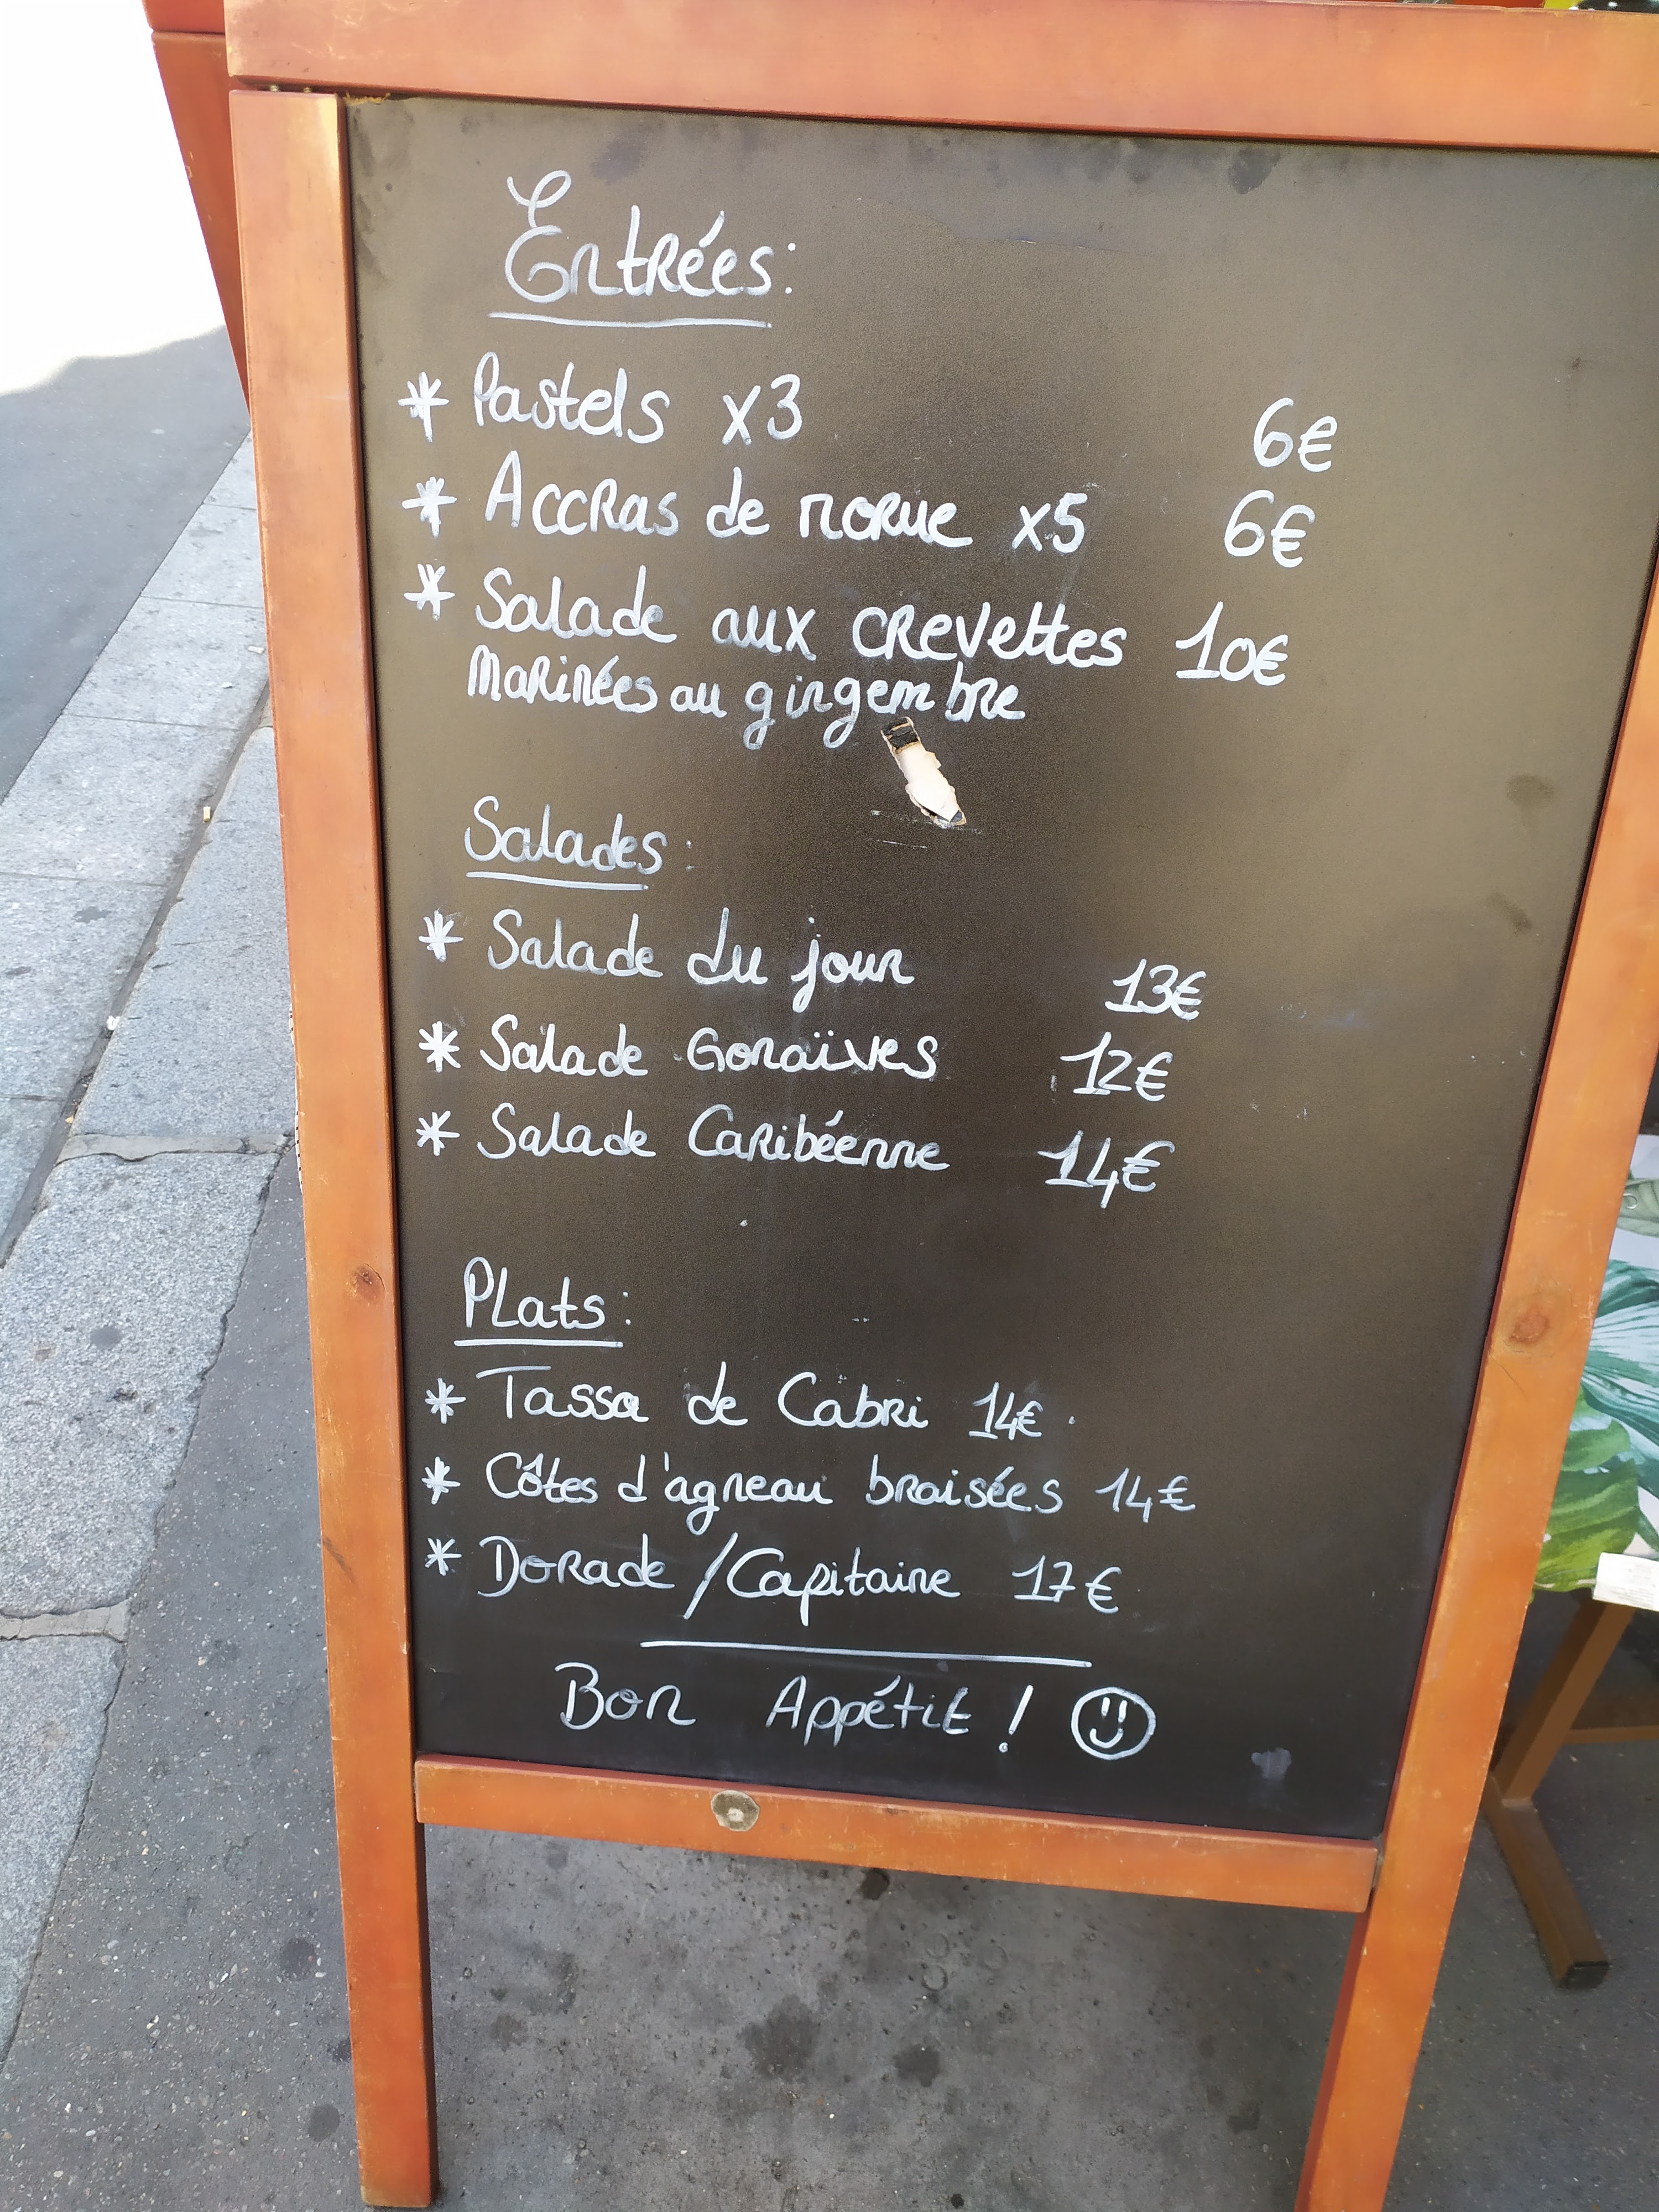 Entrées:
* Pastels x3 6€
* Accras de morue x5 6€
* Salade aux crevettes 10€
marinées au gingembre
Salades:
* Salade du jour 13€
* Salade Gonaïves 12€
* Salade Caribéenne 14€
Plats:
* Tassa de Cabri 14€
* Côtes d'agneau braisées 14€
* Dorade/Capitaine 17€
Bon Appétit! ☺